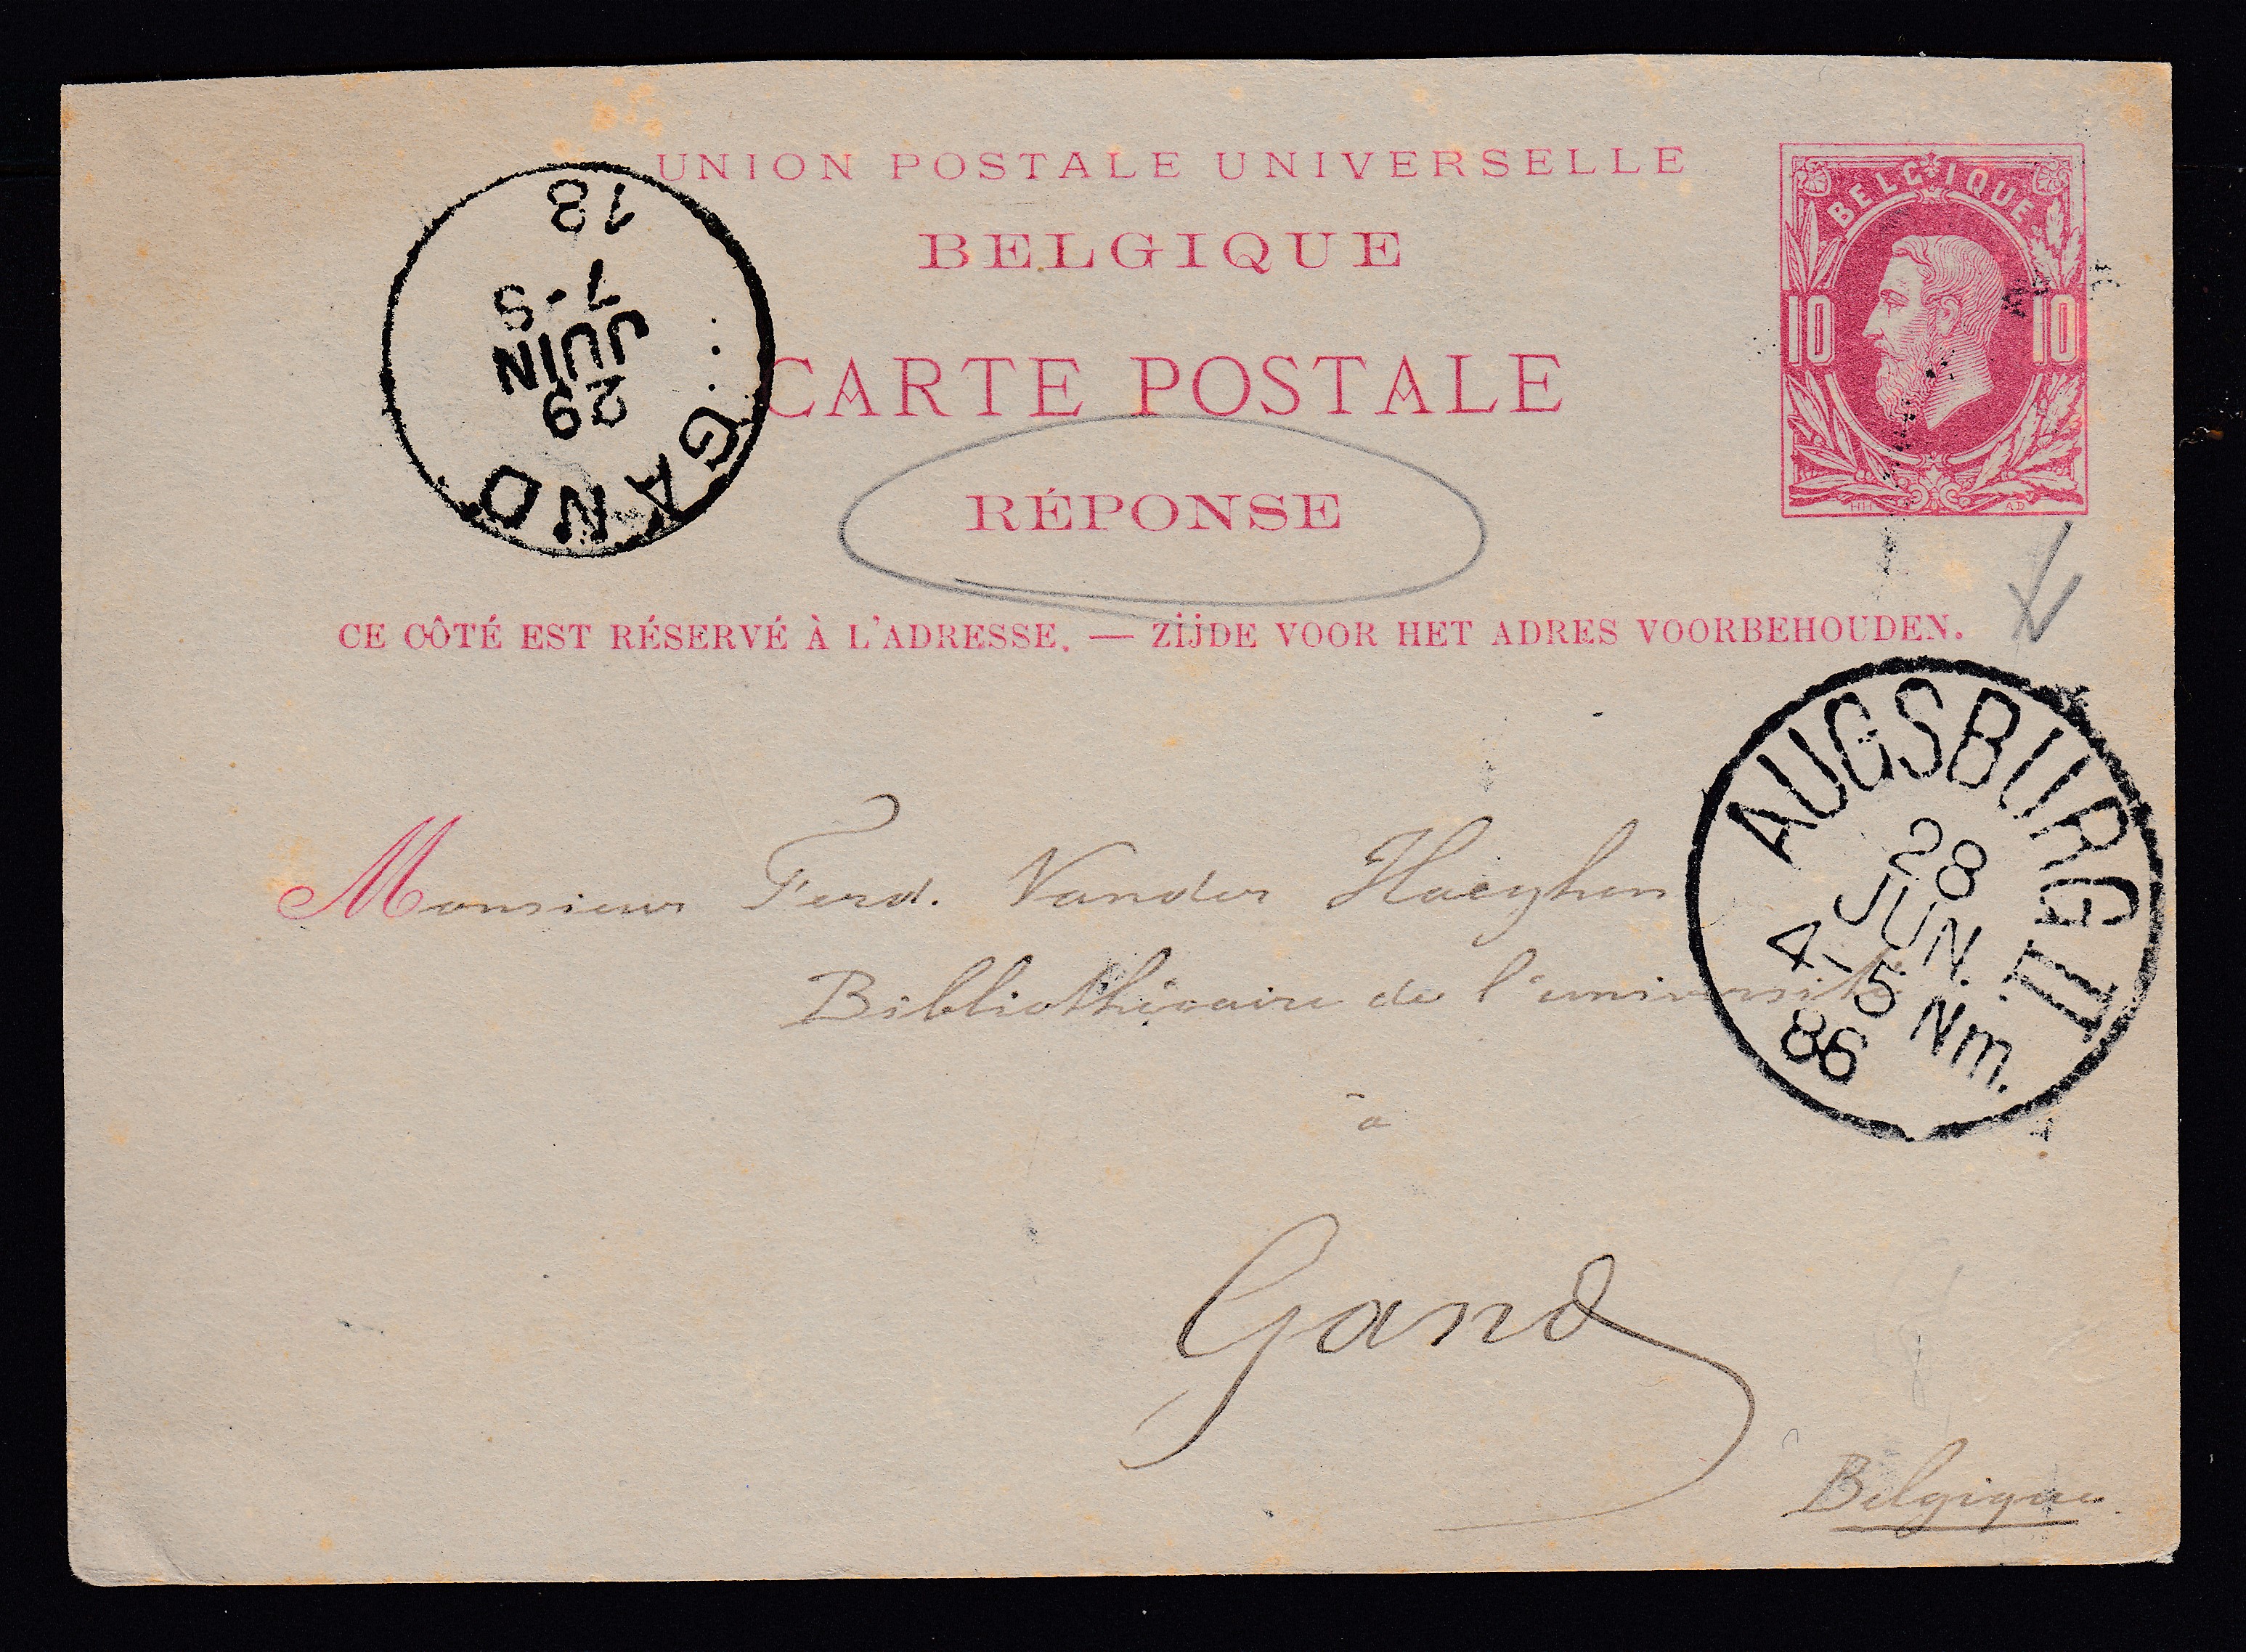 UNION POSTALE UNIVERSELLE
BELGIQUE
CARTE POSTALE
RÉPONSE
CE CÔTÉ EST RÉSERVÉ À L'ADRESSE. — ZIJDE VOOR HET ADRES VOORBEHOUDEN.
BELGIQUE
10 10
HH AD
GAND
29
JUIN
7-S
18
AUGSBURG II
28
JUN.
4-5 Nm.
86
Monsieur Ferd. Vander Haeghen
Bibliothécaire de l'université
à
Gand
Belgique.